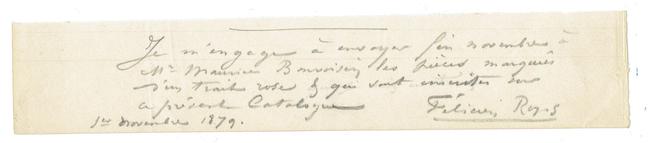 Je m'engage à envoyer fin novembre à
Mr Maurice Bonvoisin les pièces marqués
d'un trait rose & qui sont inscrites sur
ce présent Catalogue
Félicien Rops
1er novembre 1879.